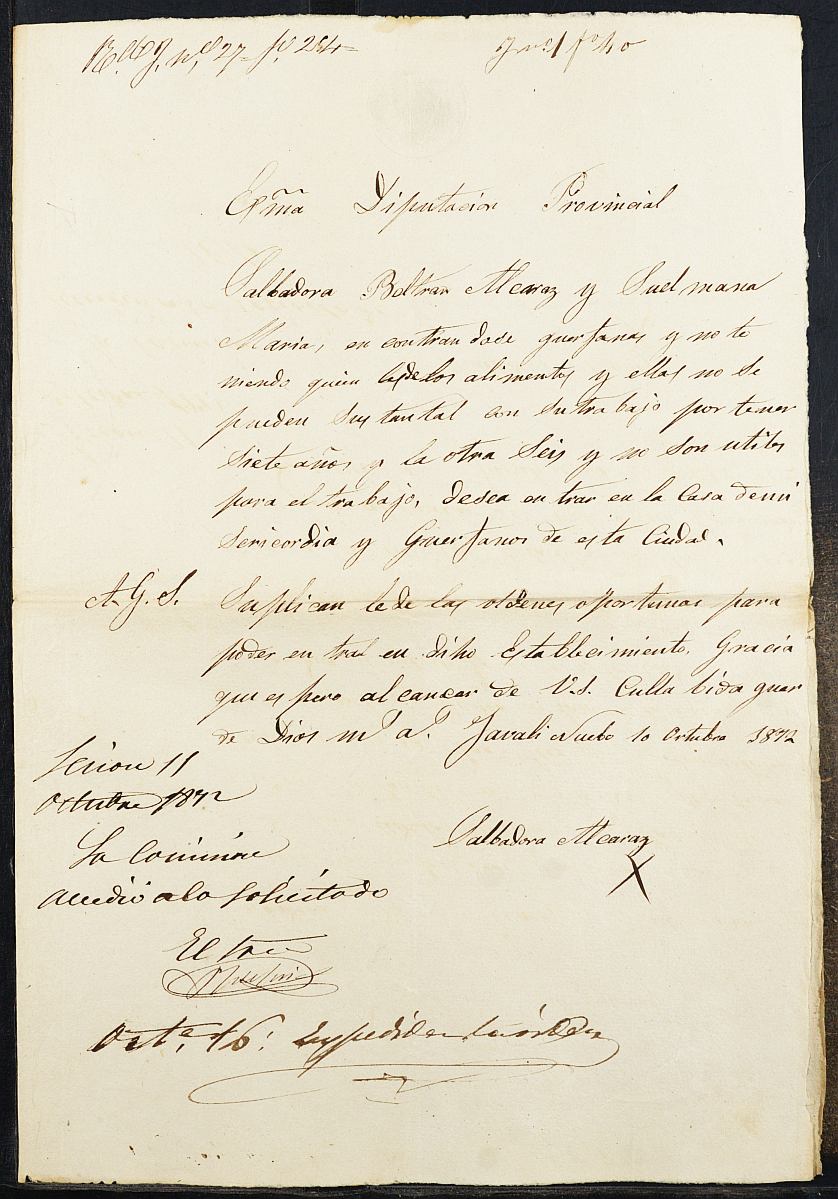 nº 27 fº 284
fº 40
Exm̃a Diputacion Provincial
Salbadora Beltran Alcaraz y Suelmana
Maria, en contran dose guerfanas y no te
niendo quien les de los alimentos y ellas no se
pueden sustental con su trabajo por tener
siete años y la otra seis y no son utiles
para el trabajo, desea en trar en la Casa de mi
sericordia y Guerfanos de esta Ciudad.
A. G. S. Suplican le de las oldenes oportunas para
poder en tral en diho Establecimiento. Gracia
que es pero al canzar de V.S. Culla bida guar
de Dios mˢ aˢ. Javali Nuebo 10 Octubre 1872
Sesion 11
Octubre 1872
La Comision
accedió a lo solicitado
Salbadora Alcaraz
X
El srio
Octe. 16: Expedida la órden